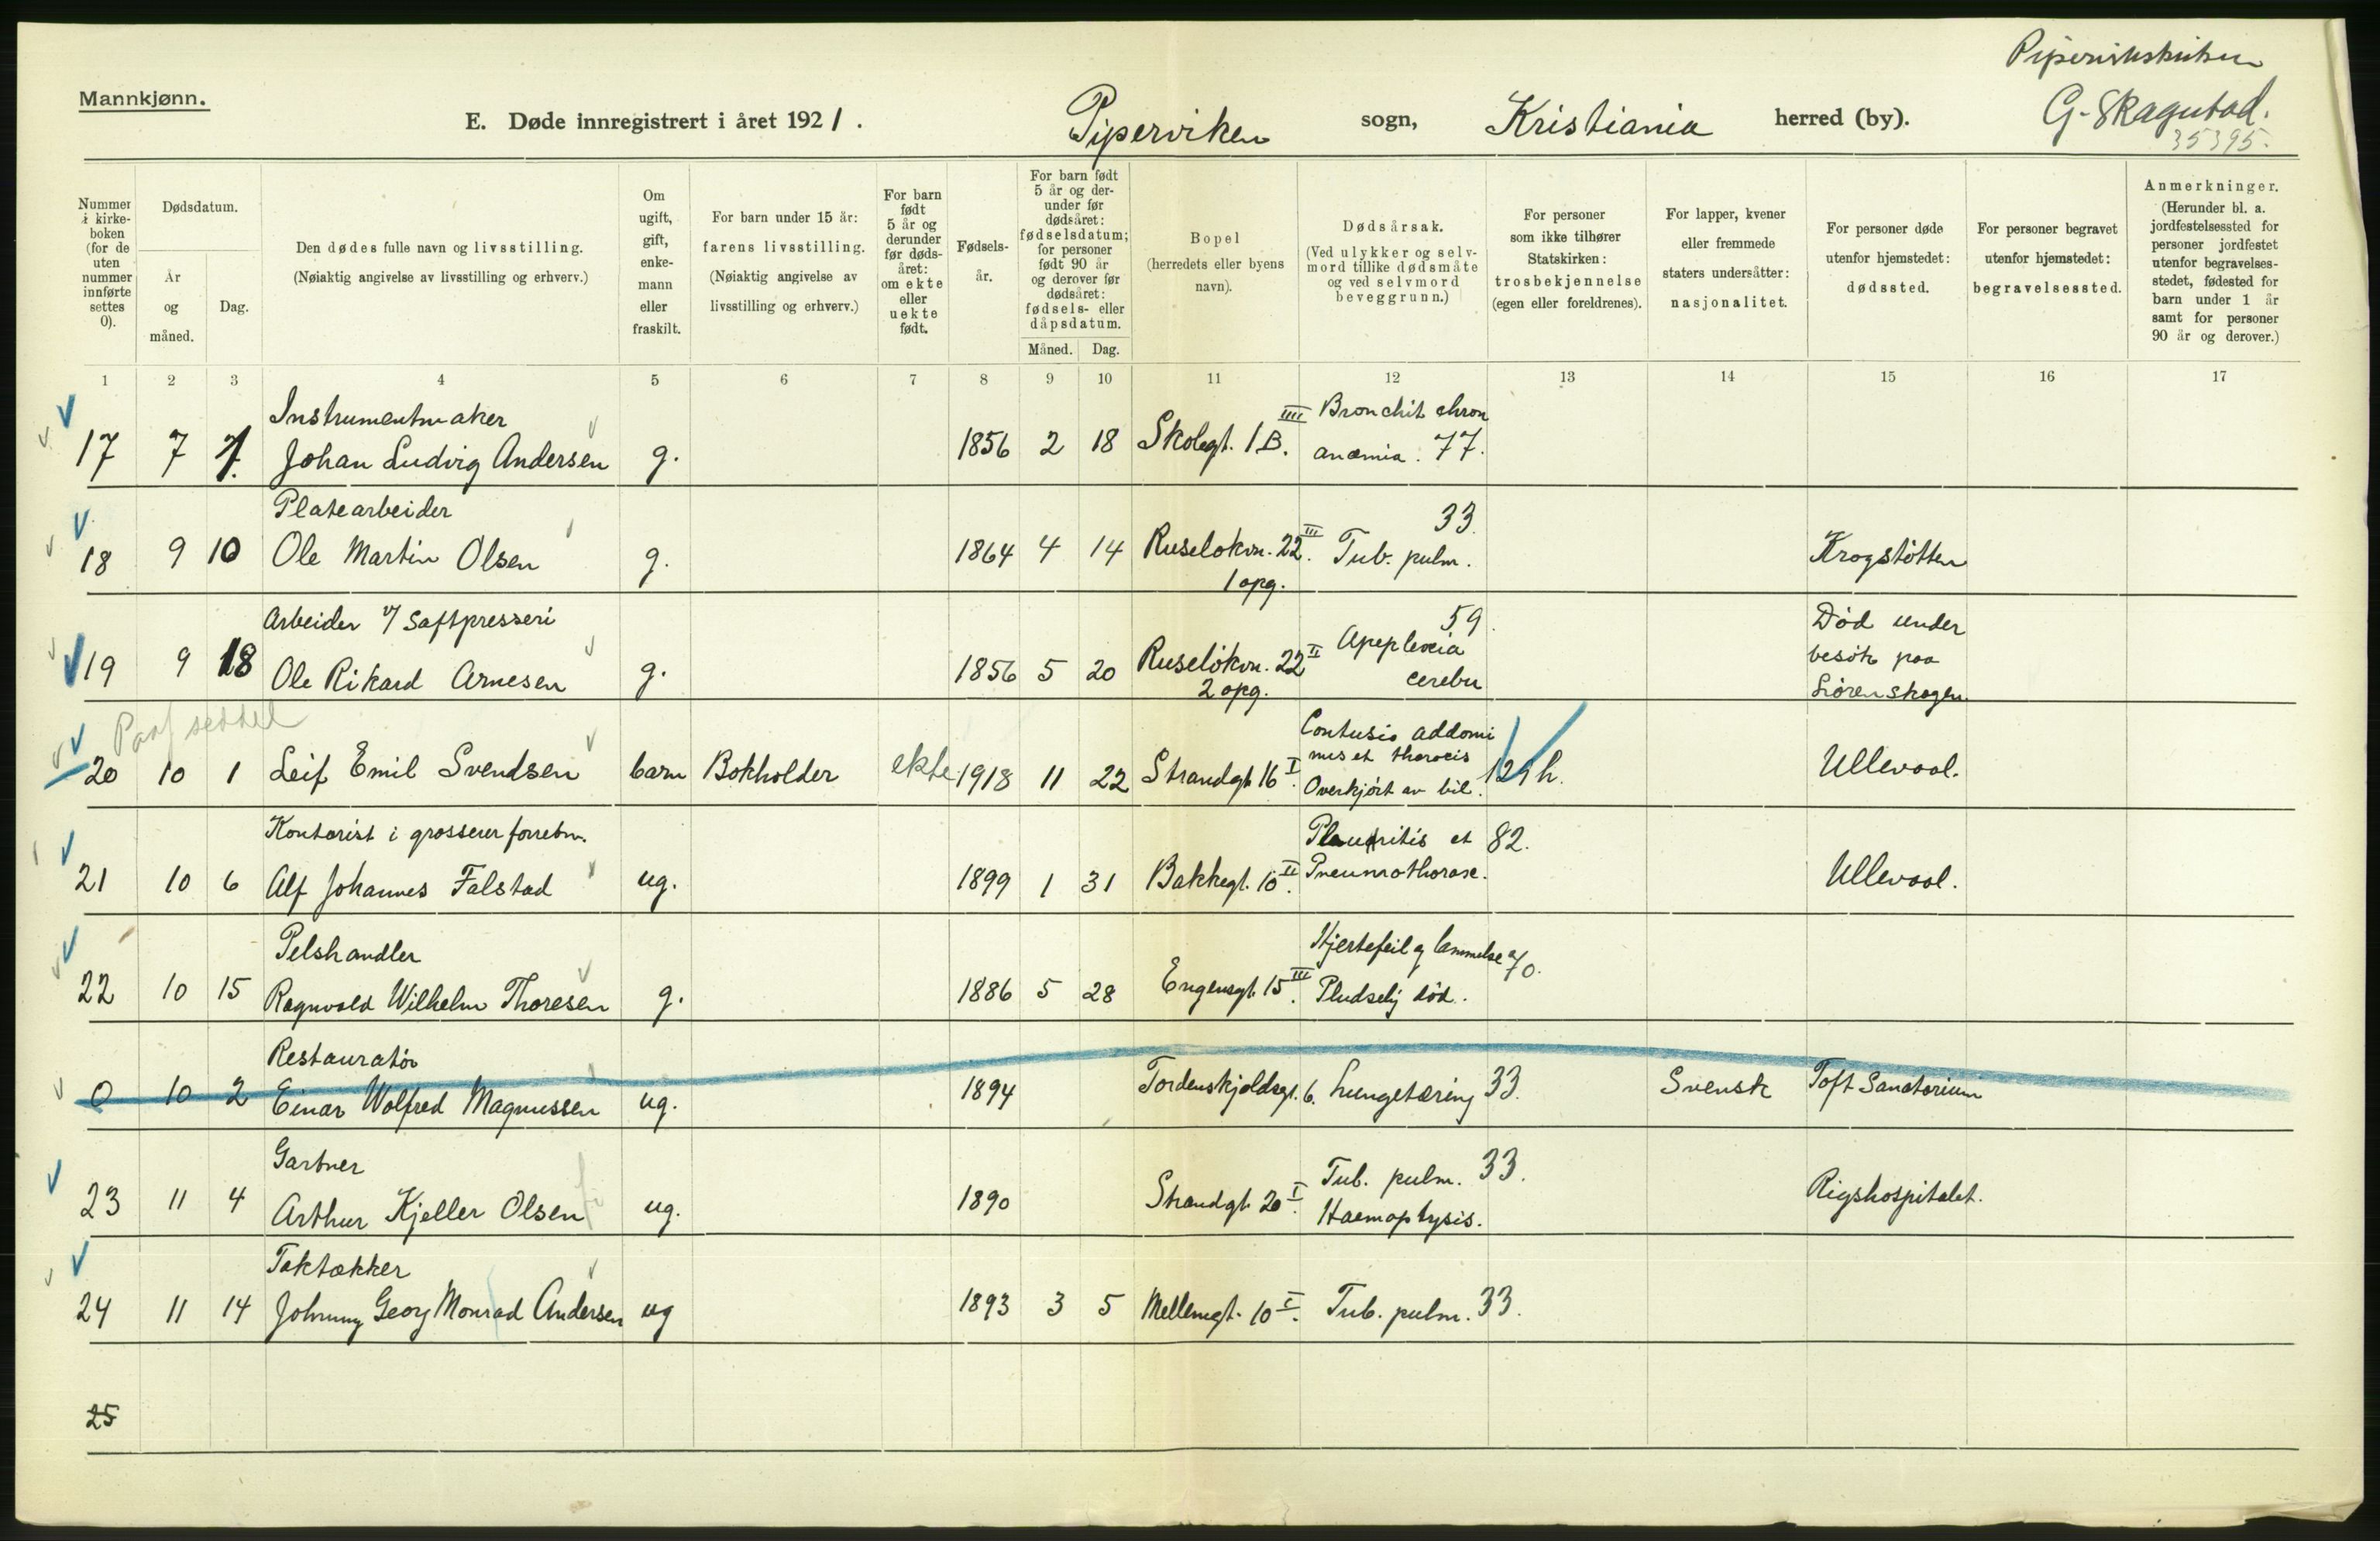 Mannkjønn.
E. Døde innregistrert i året 1921. Piperviken sogn, Kristiania herred (by).
G. Skagestad.
35395.
Nummer i kirkeboken (for de uten nummer innførte settes 0).
Dødsdatum.
År og måned.
Dag.
Den dødes fulle navn og livsstilling.
(Nøiaktig angivelse av livsstilling og erhverv.)
Om ugift, gift, enkemann eller fraskilt.
For barn under 15 år:
farens livsstilling.
(Nøiaktig angivelse av livsstilling og erhverv.)
For barn født 5 år og derunder før dødsåret: om ekte eller uekte født.
Fødselsår.
For barn født 5 år og derunder før dødsåret: fødselsdatum; for personer født 90 år og derover før dødsåret: fødsels- eller dåpsdatum.
Måned. Dag.
Bopel
(herredets eller byens navn).
Dødsårsak.
(Ved ulykker og selvmord tillike dødsmåte og ved selvmord beveggrunn.)
For personer som ikke tilhører Statskirken:
trosbekjennelse
(egen eller foreldrenes).
For lapper, kvener eller fremmede staters undersåtter:
nasjonalitet.
For personer døde utenfor hjemstedet:
dødssted.
For personer begravet utenfor hjemstedet:
begravelsessted.
Anmerkninger.
(Herunder bl. a. jordfestelsessted for personer jordfestet utenfor begravelsesstedet, fødested for barn under 1 år samt for personer 90 år og derover.)
1 2 3 4 5 6 7 8 9 10 11 12 13 14 15 16 17
Instrumentmaker
17 7 7. Johan Ludvig Andersen g. 1856 2 18 Skolegt. 1 B. IIII Bronchit chron
anæmia. 77.
Platearbeider
18 9 10 Ole Martin Olsen g. 1864 4 14 Ruseløkvn. 22 III. 1 opg. Tub. pulm. 33. Krogstøtten
Arbeider v/ Saftpresseri
19 9 18 Ole Rikard Arnesen g. 1856 5 20 Ruseløkvn. 22 II 2 opg. Apeplexia cerebri 59. Død under
besøk paa
Lørenskogen
20 10 1 Leif Emil Svendsen barn Bokholder ekte 1918 11 22 Strandgt. 16 I. Contusio addomi
nus et thoracis
Overkjørt av bil. 129 h. Ullevaal.
Kontorist i grosserer forretn.
21 10 6 Alf Johannes Falstad ug. 1899 1 31 Bakkegt. 10 II. Pleuritis et 82.
Pneumothorax. Ullevaal.
Pelshandler
22 10 15 Ragnvald Wilhelm Thoresen g. 1886 5 28 Engensgt. 15 III. Hjertefeil og lammelse 70.
Pludselig død.
Restauratør
0 10 2 Einar Wolfred Magnussen ug. 1894 Tordenskjoldsgt. 6. Lungetæring 33. Svensk Toft Sanatorium
Gartner
23 11 4 Arthur Kjeller Olsen ug. 1890 Strandgt. 20 I. Tub. pulm. 33.
Haemoptysis. Rigshospitalet.
Taktækker
24 11 14 Johnny Georg Monrad Andersen ug 1893 3 5 Mellemgt. 10 I. Tub. pulm. 33.
25